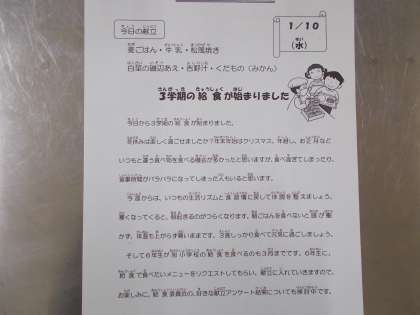 今日の献立
1／10
（水）
麦ごはん・牛乳・松風焼き
白菜の磯辺あえ・吉野汁・くだもの（みかん）
3学期の給食が始まりました
今日から3学期の給食が始まりました。
冬休みは楽しく過ごせましたか？年末年始はクリスマス、年越し、お正月など
いつもと違う食べ物を食べる機会が多かったと思いますが、食べ過ぎてしまったり、
食事時間がバラバラになってしまった人もいると思います。
今週からは、いつもの生活リズムと食習慣に戻して体調を整えましょう。
寒くなってくると、朝起きるのがつらくなります。朝ごはんを食べないと頭が働
かず、体温も上がらず寒いままです。3食しっかり食べて元気に過ごしましょう。
そして6年生が小学校の給食を食べるのも3月までです。6年生に、
給食で食べたいメニューをリクエストしてもらい、献立に入れていきますので、
お楽しみに。給食委員会の、好きな献立アンケート結果についても検討中です。